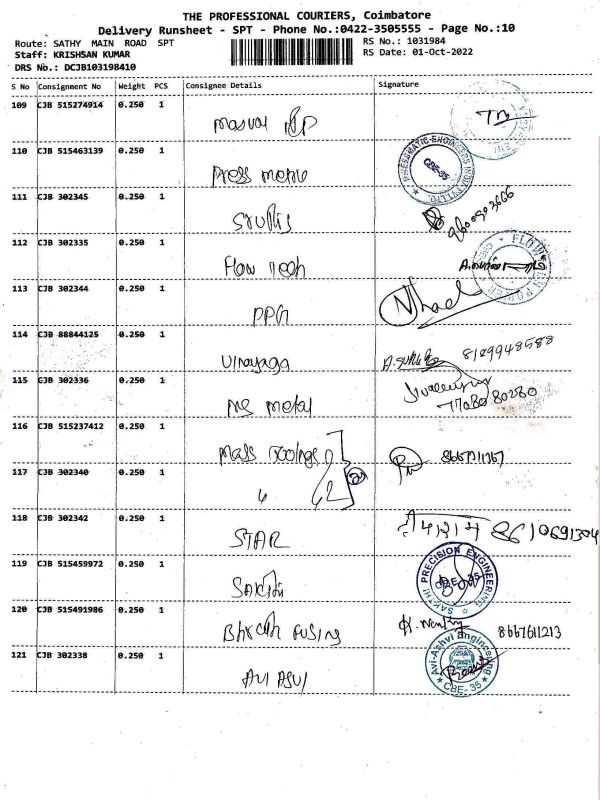 THE PROFESSIONAL COURIERS, Coimbatore
Delivery Runsheet - SPT - Phone No.:0422-3505555 - Page No.:10
Route: SATHY MAIN ROAD SPT
RS No.: 1031984
Staff: KRISHSAN KUMAR
RS Date: 01-Oct-2022
DRS No.: DCJB103198410
S No Consignment No Weight PCS Consignee Details Signature
109 CJB 515274914 0.250 1
110 CJB 515463139 0.250 1 Press
PRESSMATIC ENGINEERS INDIA PVT LTD. CBE-35
111 CJB 302345 0.250 1
112 CJB 302335 0.250 1 Flow Tech
113 CJB 302344 0.250 1 PPG
114 CJB 88844125 0.250 1 Vinayaga 8129948588
115 CJB 302336 0.250 1 metal
116 CJB 515237412 0.250 1 Mass Toolings
117 CJB 302340 0.250 1 2
118 CJB 302342 0.250 1 STAR 8610691304
119 CJB 515459972 0.250 1 Sakthi
SAKTHI PRECISION ENGINEERING CBE-35
120 CJB 515491986 0.250 1 8667611213
121 CJB 302338 0.250 1 AVI ASVI
Avi-Ashvi Engineering CBE-35